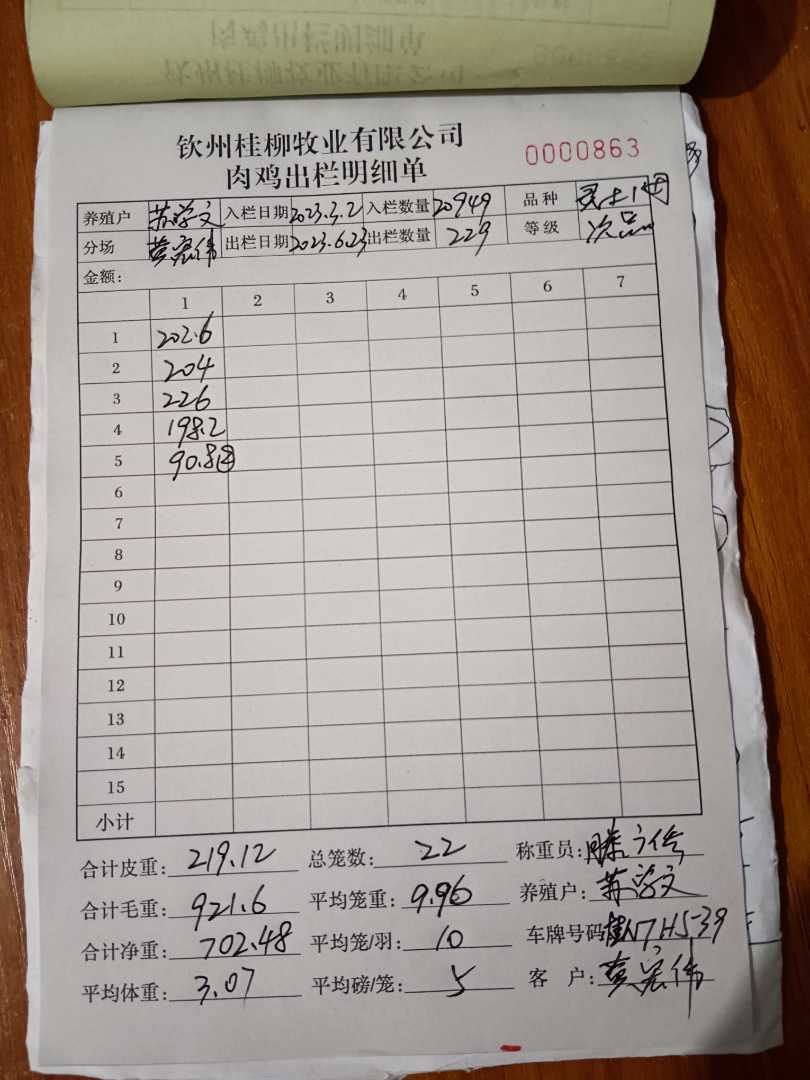 钦州桂柳牧业有限公司
肉鸡出栏明细单
0000863
养殖户 苏学文 入栏日期 2023.3.2 入栏数量 20949 品种
分场 黄宏伟 出栏日期 2023.6.23 出栏数量 229 等级 次品
金额:
1 2 3 4 5 6 7
1 202.6
2 204
3 226
4 198.2
5 90.8②
6
7
8
9
10
11
12
13
14
15
小计
合计皮重: 219.12 总笼数: 22 称重员:
合计毛重: 921.6 平均笼重: 9.96 养殖户: 苏学文
合计净重: 702.48 平均笼/羽: 10 车牌号码 桂N7H539
平均体重: 3.07 平均磅/笼: 5 客 户: 黄宏伟